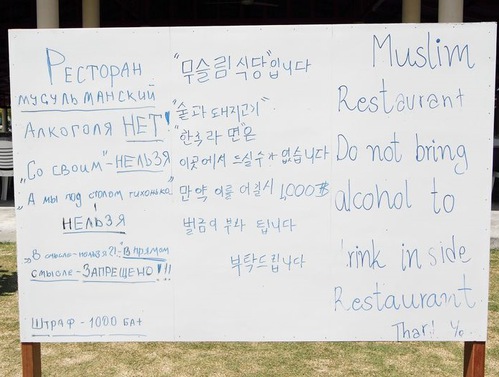 Ресторан
мусульманский
Алкоголя НЕТ!
"Со своим" - нельзя
"А мы под столом тихонько"
НЕЛЬЗЯ
"В смысле - нельзя?!" В прямом
смысле - Запрещено!!!
Штраф - 1000 бат
"무슬림 식당"입니다
"술과 돼지고기"
"한국라면"은
이곳에서 드실수 없습니다
만약 이를 어길시 1,000฿
벌금이 부과 됩니다
부탁드립니다
Muslim
Restaurant
Do not bring
alcohol to
rink inside
Restaurant